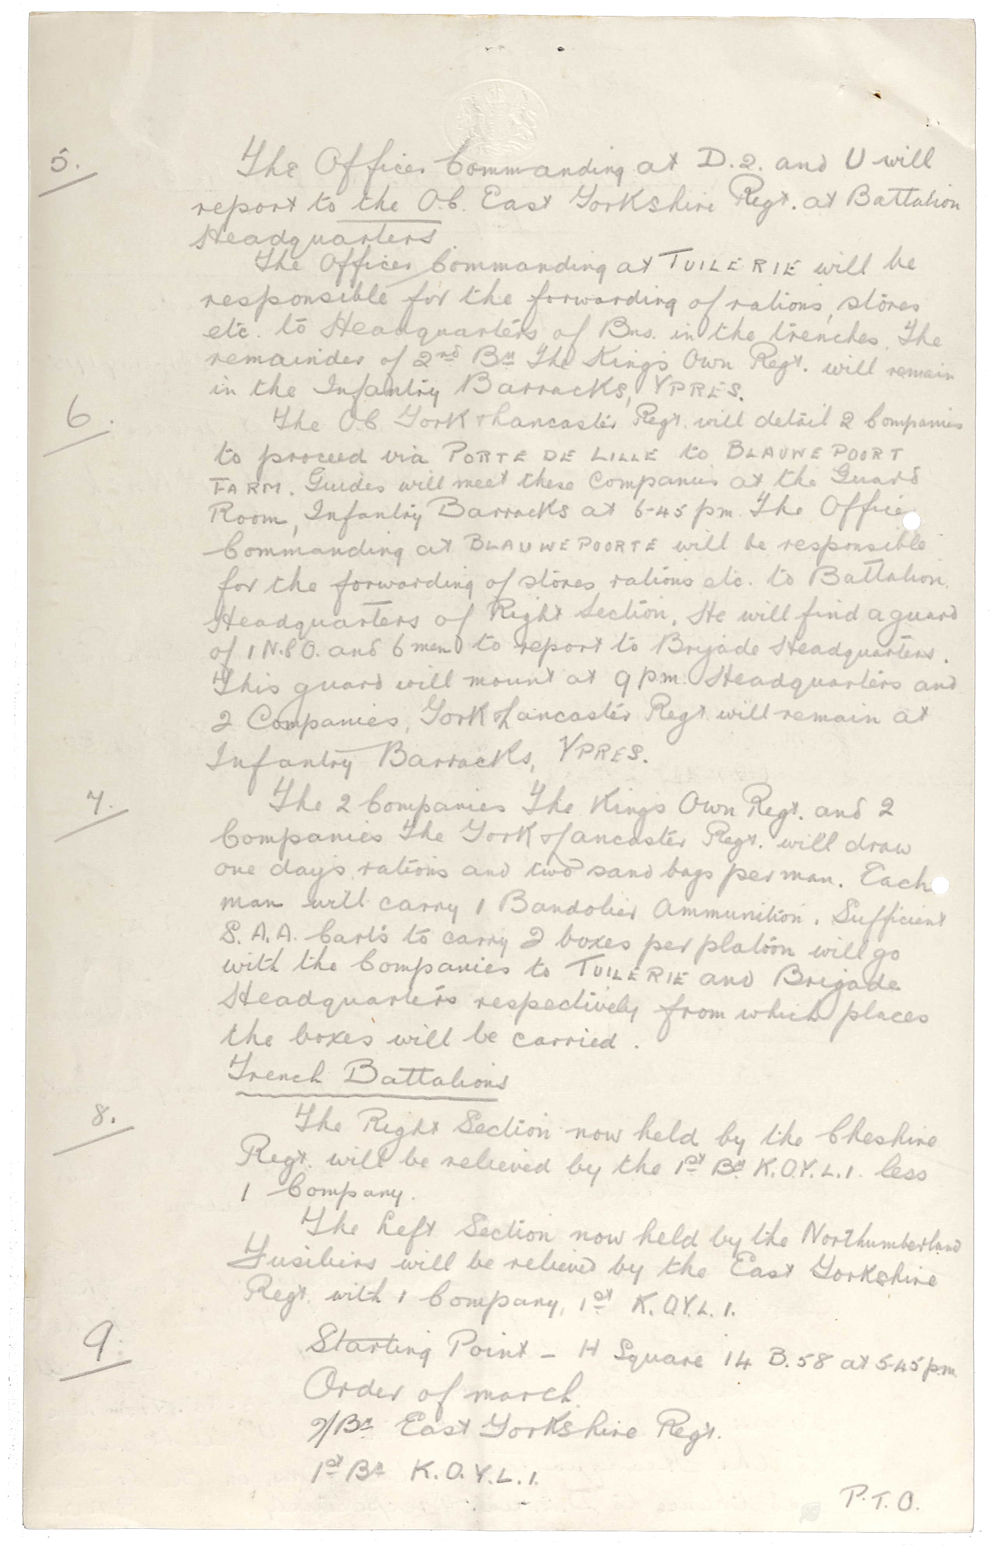 5. The Officer Commanding at D.2. and U will
report to the O.C. East Yorkshire Regt. at Battalion
Headquarters.
The Officer Commanding at TUILERIE will be
responsible for the forwarding of rations, stores
etc. to Headquarters of Bns. in the trenches. The
remainder of 2nd Bn The King's Own Regt. will remain
in the Infantry Barracks, YPRES.
6. The O.C York & Lancaster Regt. will detail 2 Companies
to proceed via PORTE DE LILLE to BLAUWEPOORT
FARM. Guides will meet these Companies at the Guard
Room, Infantry Barracks at 6-45 pm. The Officer
Commanding at BLAUWEPOORTE will be responsible
for the forwarding of stores rations etc. to Battalion
Headquarters of Right Section. He will find a guard
of 1 N.C.O. and 6 men to report to Brigade Headquarters.
This guard will mount at 9 pm. Headquarters and
2 Companies, York & Lancaster Regt. will remain at
Infantry Barracks, YPRES.
7. The 2 Companies The King's Own Regt. and 2
Companies The York & Lancaster Regt. will draw
one day's rations and two sand bags per man. Each
man will carry 1 Bandolier Ammunition. Sufficient
S.A.A. Carts to carry 2 boxes per platoon will go
with the Companies to TUILERIE and Brigade
Headquarters respectively from which places
the boxes will be carried.
Trench Battalions
8. The Right Section now held by the Cheshire
Regt. will be relieved by the 1st Bn K.O.Y.L.I. less
1 Company.
The Left Section now held by the Northumberland
Fusiliers will be relieved by the East Yorkshire
Regt. with 1 Company, 1st K.O.Y.L.I.
9. Starting Point - H Square 14 B.58 at 5.45 pm
Order of march
2/Bn East Yorkshire Regt.
1st Bn K.O.Y.L.I.
P.T.O.